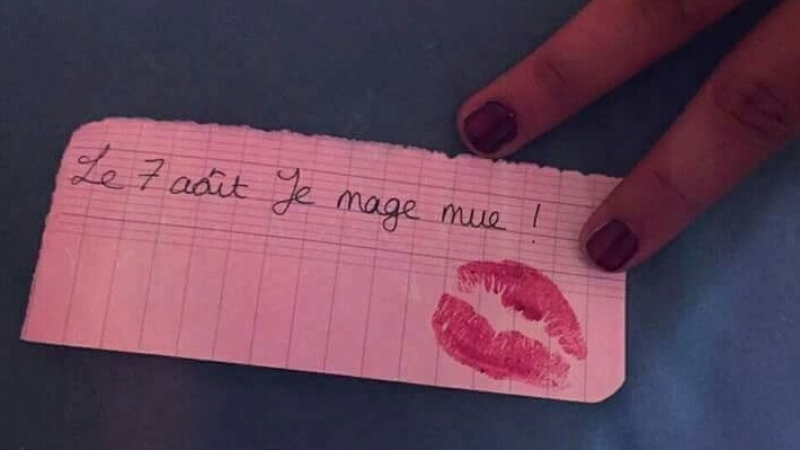 Le 7 août Je mage mue !